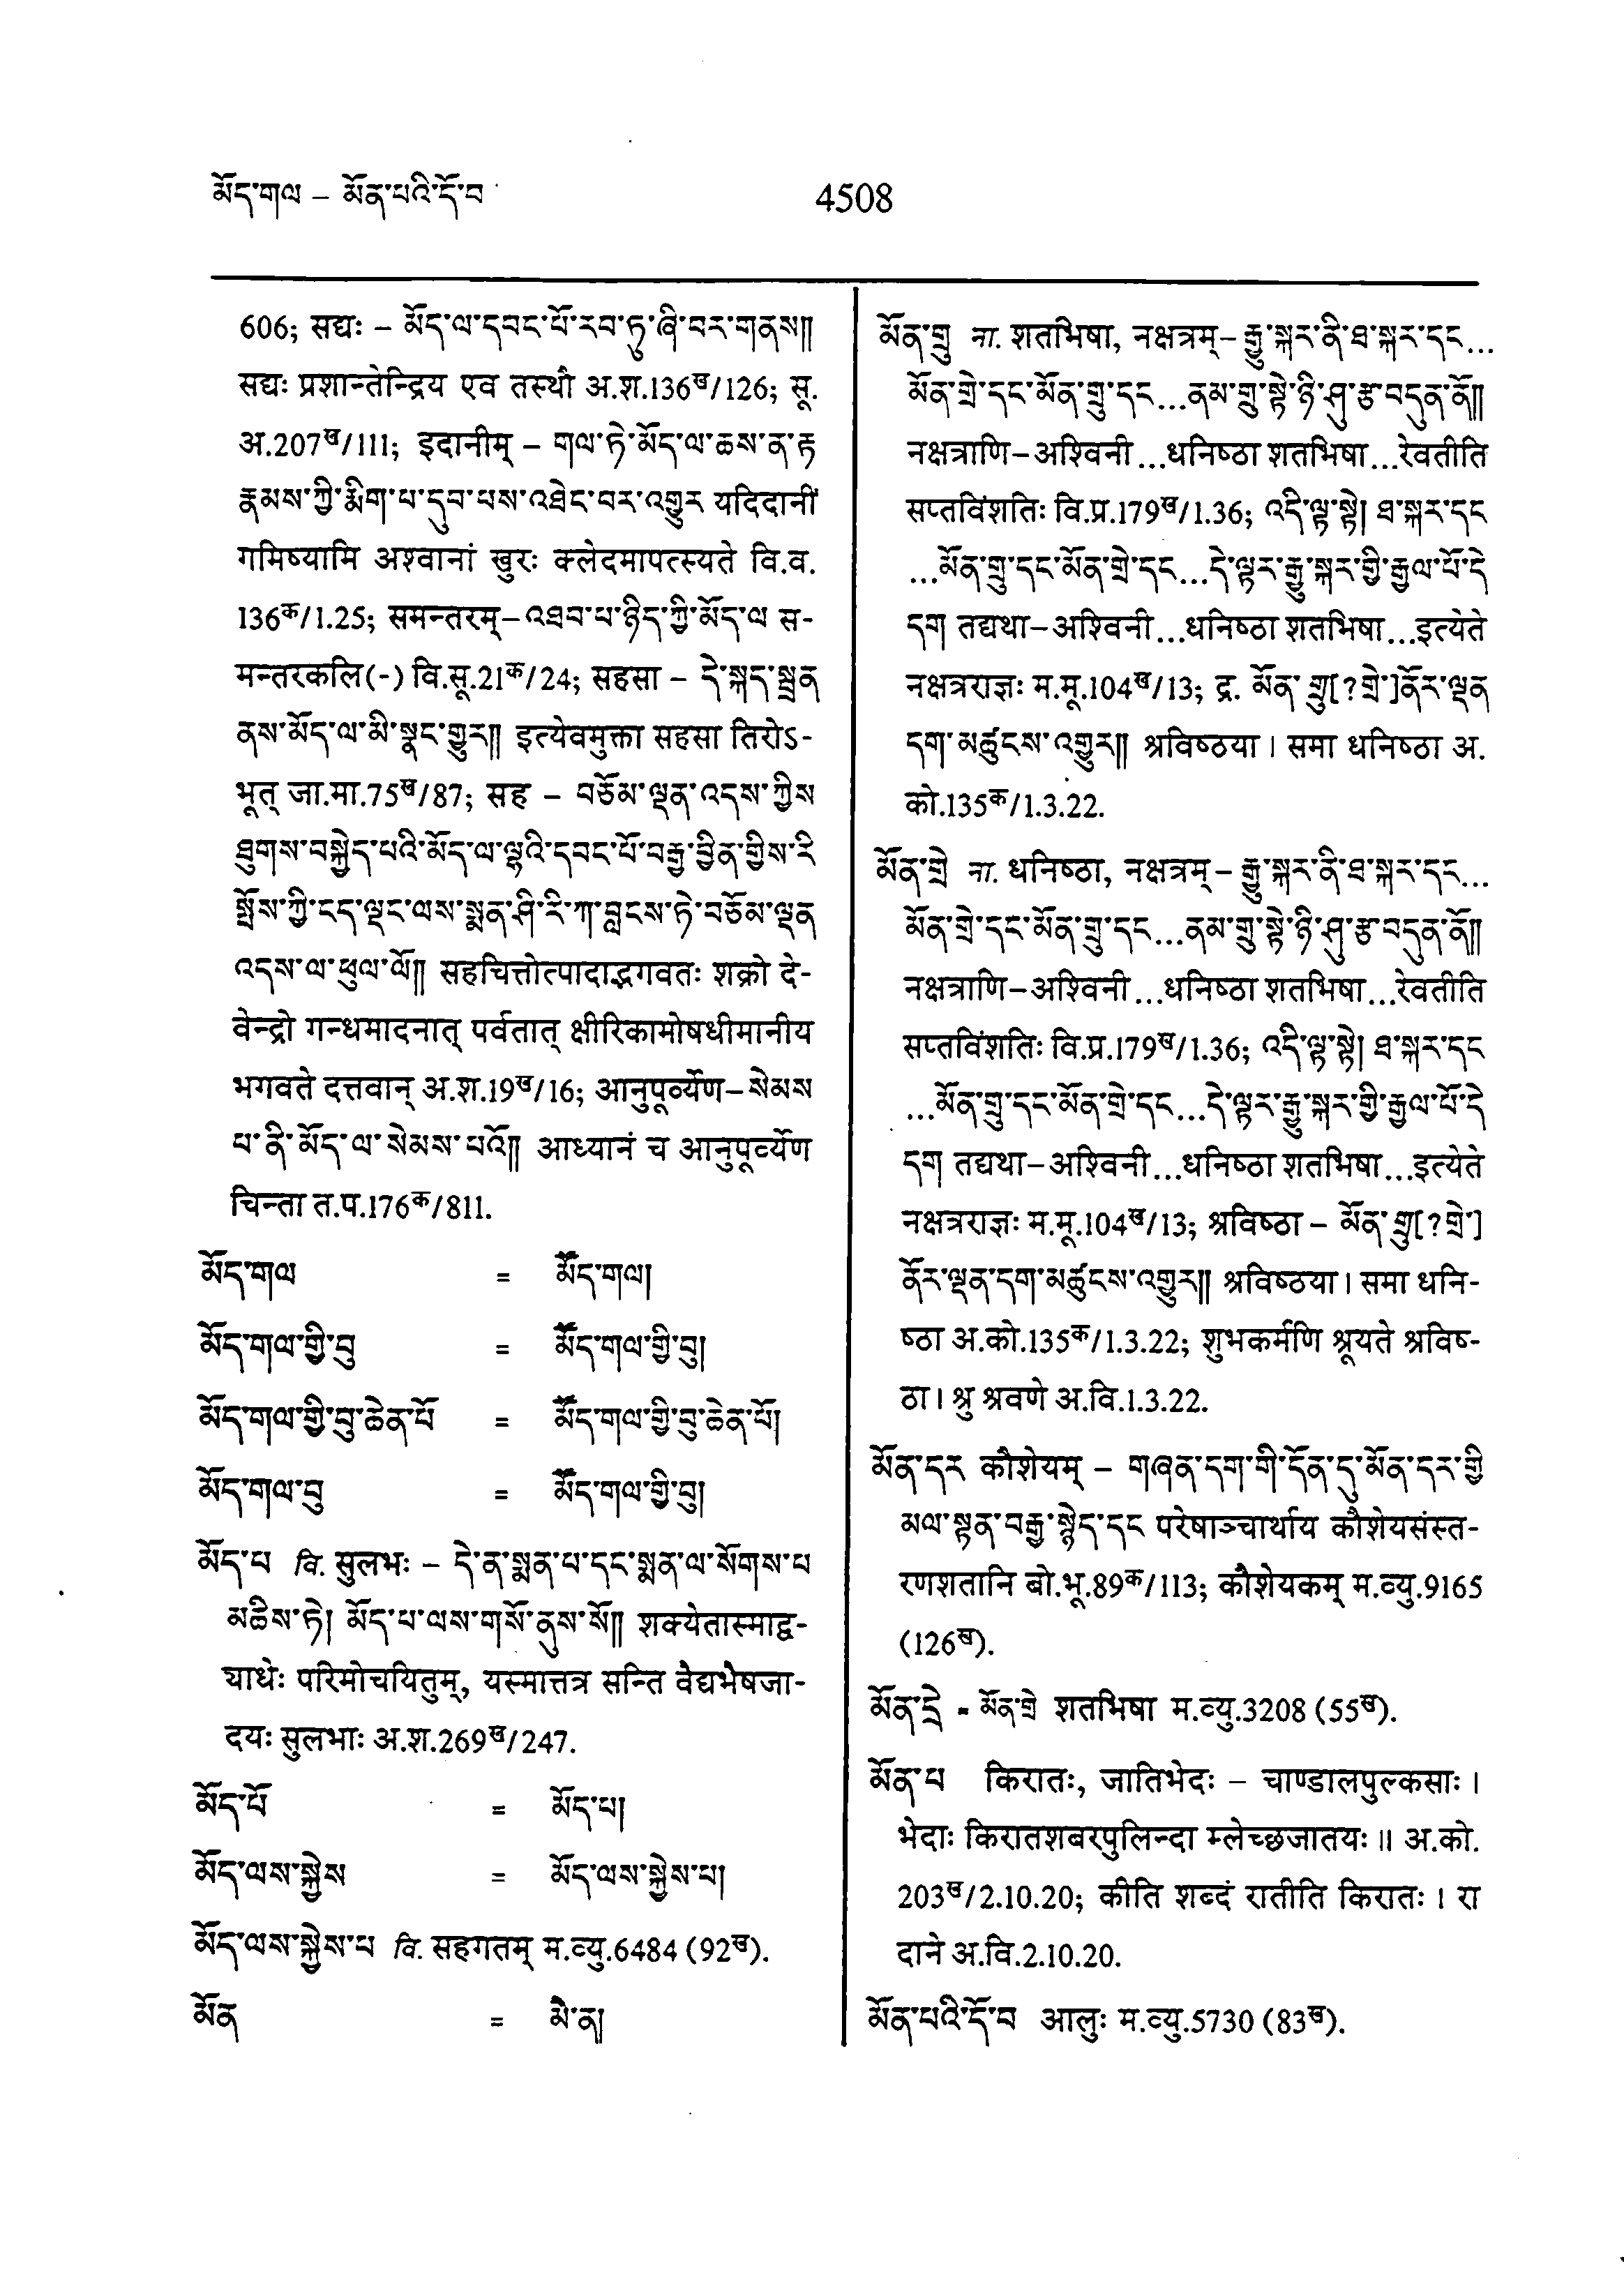 མོད་གལ – མོན་པའི་དོ་བ
4508
606; सद्यः – མོད་ལ་དབང་པོ་རབ་ཏུ་ཞི་བར་གནས༎
सद्यः प्रशान्तेन्द्रिय एव तस्थौ अ.श.136ख/126; सू.
अ.207ख/111; इदानीम् – གལ་ཏེ་མོད་ལ་ཆས་ན་རྟ
རྣམས་ཀྱི་རྨིག་པ་དུབ་པས་འཐེང་བར་འགྱུར यदिदानीं
गमिष्यामि अश्वानां खुरः क्लेदमापत्स्यते वि.व.
136क/1.25; समन्तरम्–འཐབ་པ་ཉིད་ཀྱི་མོད་ལ स-
मन्तरकलि(-) वि.सू.21क/24; सहसा – དེ་སྐད་སྨྲན
ནས་མོད་ལ་མི་སྣང་གྱུར༎ इत्येवमुक्ता सहसा तिरोऽ-
भूत् जा.मा.75ख/87; सह – བཅོམ་ལྡན་འདས་ཀྱིས
ཐུགས་བསྐྱེད་པའི་མོད་ལ་ལྷའི་དབང་པོ་བརྒྱ་བྱིན་གྱིས་རི
སྤོས་ཀྱི་ངད་ལྡང་ལས་སྨན་ཤི་རི་ཀ་བླངས་ཏེ་བཅོམ་ལྡན
འདས་ལ་ཕུལ་ལོ༎ सहचित्तोत्पादाद्भगवतः शक्रो दे-
वेन्द्रो गन्धमादनात् पर्वतात् क्षीरिकामोषधीमानीय
भगवते दत्तवान् अ.श.19ख/16; आनुपूर्व्येण–སེམས
པ་ནི་མོད་ལ་སེམས་པའོ༎ आध्यानं च आनुपूर्व्येण
चिन्ता त.प.176क/811.
མོད་གལ = མཽད་གལ།
མོད་གལ་གྱི་བུ = མཽད་གལ་གྱི་བུ།
མོད་གལ་གྱི་བུ་ཆེན་པོ = མཽད་གལ་གྱི་བུ་ཆེན་པོ།
མོད་གལ་བུ = མཽད་གལ་གྱི་བུ།
མོད་པ वि. सुलभः – དེ་ན་སྨན་པ་དང་སྨན་ལ་སོགས་པ
མཆིས་ཏེ། མོད་པ་ལས་གསོ་ནུས་སོ༎ शक्येतास्माद्व-
याधेः परिमोचयितुम्, यस्मात्तत्र सन्ति वैद्यभैषजा-
दयः सुलभाः अ.श.269ख/247.
མོད་པོ = མོད་པ།
མོད་ལས་སྐྱེས = མོད་ལས་སྐྱེས་པ།
མོད་ལས་སྐྱེས་པ वि. सहगतम् म.व्यु.6484 (92ख).
མོན = མེ་ན།
མོན་གྲུ ना. शतभिषा, नक्षत्रम्– རྒྱུ་སྐར་ནི་ཐ་སྐར་དང...
མོན་གྲེ་དང་མོན་གྲུ་དང...ནམ་གྲུ་སྟེ་ཉི་ཤུ་རྩ་བདུན་ནོ༎
नक्षत्राणि–अश्विनी...धनिष्ठा शतभिषा...रेवतीति
सप्तविंशतिः वि.प्र.179ख/1.36; འདི་ལྟ་སྟེ། ཐ་སྐར་དང
...མོན་གྲུ་དང་མོན་གྲེ་དང...དེ་ལྟར་རྒྱུ་སྐར་གྱི་རྒྱལ་པོ་དེ
དག तद्यथा–अश्विनी...धनिष्ठा शतभिषा...इत्येते
नक्षत्रराज्ञः म.मू.104ख/13; द्र. མོན་གྲུ[?གྲེ་]ནོར་ལྡན
དག་མཚུངས་འགྱུར༎ श्रविष्ठया। समा धनिष्ठा अ.
को.135क/1.3.22.
མོན་གྲེ ना. धनिष्ठा, नक्षत्रम्– རྒྱུ་སྐར་ནི་ཐ་སྐར་དང...
མོན་གྲེ་དང་མོན་གྲུ་དང...ནམ་གྲུ་སྟེ་ཉི་ཤུ་རྩ་བདུན་ནོ༎
नक्षत्राणि–अश्विनी...धनिष्ठा शतभिषा...रेवतीति
सप्तविंशतिः वि.प्र.179ख/1.36; འདི་ལྟ་སྟེ། ཐ་སྐར་དང
...མོན་གྲུ་དང་མོན་གྲེ་དང...དེ་ལྟར་རྒྱུ་སྐར་གྱི་རྒྱལ་པོ་དེ
དག तद्यथा–अश्विनी...धनिष्ठा शतभिषा...इत्येते
नक्षत्रराज्ञः म.मू.104ख/13; श्रविष्ठा – མོན་གྲུ[?གྲེ་]
ནོར་ལྡན་དག་མཚུངས་འགྱུར༎ श्रविष्ठया। समा धनि-
ष्ठा अ.को.135क/1.3.22; शुभकर्मणि श्रूयते श्रविष-
ठा। श्रु श्रवणे अ.वि.1.3.22.
མོན་དར कौशेयम् – གཞན་དག་གི་དོན་དུ་མོན་དར་གྱི
མལ་སྟན་བརྒྱ་སྙེད་དང परेषाञ्चार्थाय कौशेयसंस्त-
रणशतानि बो.भू.89क/113; कौशेयकम् म.व्यु.9165
(126ख).
མོན་དྲེ = མོན་གྲེ शतभिषा म.व्यु.3208 (55ख).
མོན་པ किरातः, जातिभेदः – चाण्डालपुल्कसाः।
भेदाः किरातशबरपुलिन्दा म्लेच्छजातयः॥ अ.को.
203ख/2.10.20; कीति शब्दं रातीति किरातः। रा
दाने अ.वि.2.10.20.
མོན་པའི་དོ་བ आलुः म.व्यु.5730 (83ख).